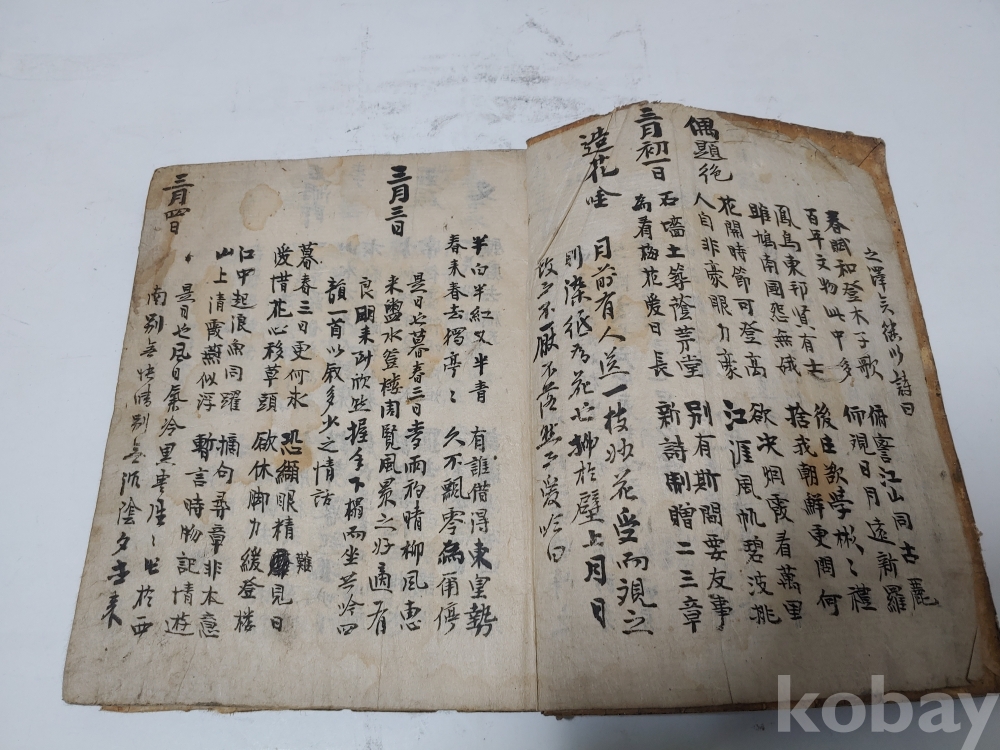 之澤矣 以詩曰
春賦和登木子歌 俯 江山同古麗
百年文物此中多 仰視日月遠新羅
鳳鳥東邦貿有士 後 欲學彬〻禮
雎鳩南國怨無娥 捨我朝鮮更問何
花開時節可登高 欲決烟霞看萬里
人自非豪眼力豪 江涯風帆碧波挑
偶題絶
三月初一日
石 土 堂 別有斯閣要友事
為看梅花愛日長 新詩制贈二三章
造花唫
目前有人送一枝 花受而視之
則染紙為花 揷於壁上月日
故 不厭不 然 愛吟曰
半白半紅又半青 有誰借得東皇勢
春来春去獨亭〻 久不飄零為甫停
三月三日
是日也暮春三日 雨初晴柳風 
来 水登樓周覽風景之好適有
良朋来 欣然握手下榻而坐共吟四
韻一首以叙多少之情話
暮春三日更何求 恐纈眼精難見日
愛惜花心移草頭 欲休脚力緩登樓
江中起浪魚同躍 摘句尋章非本意
山上清霞燕似浮 暫言時物記情遊
三月四日
是日也風日氣冷黑雲 〻 於西
南別無快晴別無沉陰夕 来
kobay